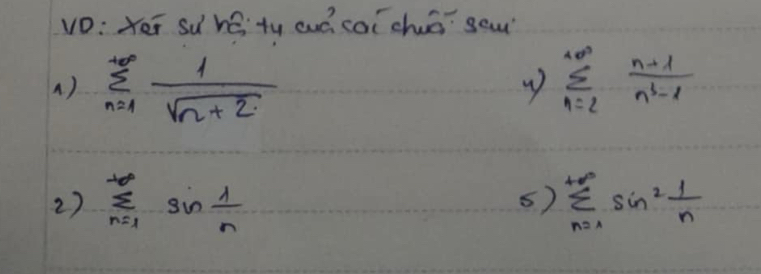 VD: Xét sự hội tụ của các chuỗi sau:
1) $\sum_{n=1}^{+\infty} \frac{1}{\sqrt{n+2}}$
4) $\sum_{n=2}^{+\infty} \frac{n+1}{n^3-1}$
2) $\sum_{n=1}^{+\infty} \sin \frac{1}{n}$
5) $\sum_{n=1}^{+\infty} \sin^2 \frac{1}{n}$